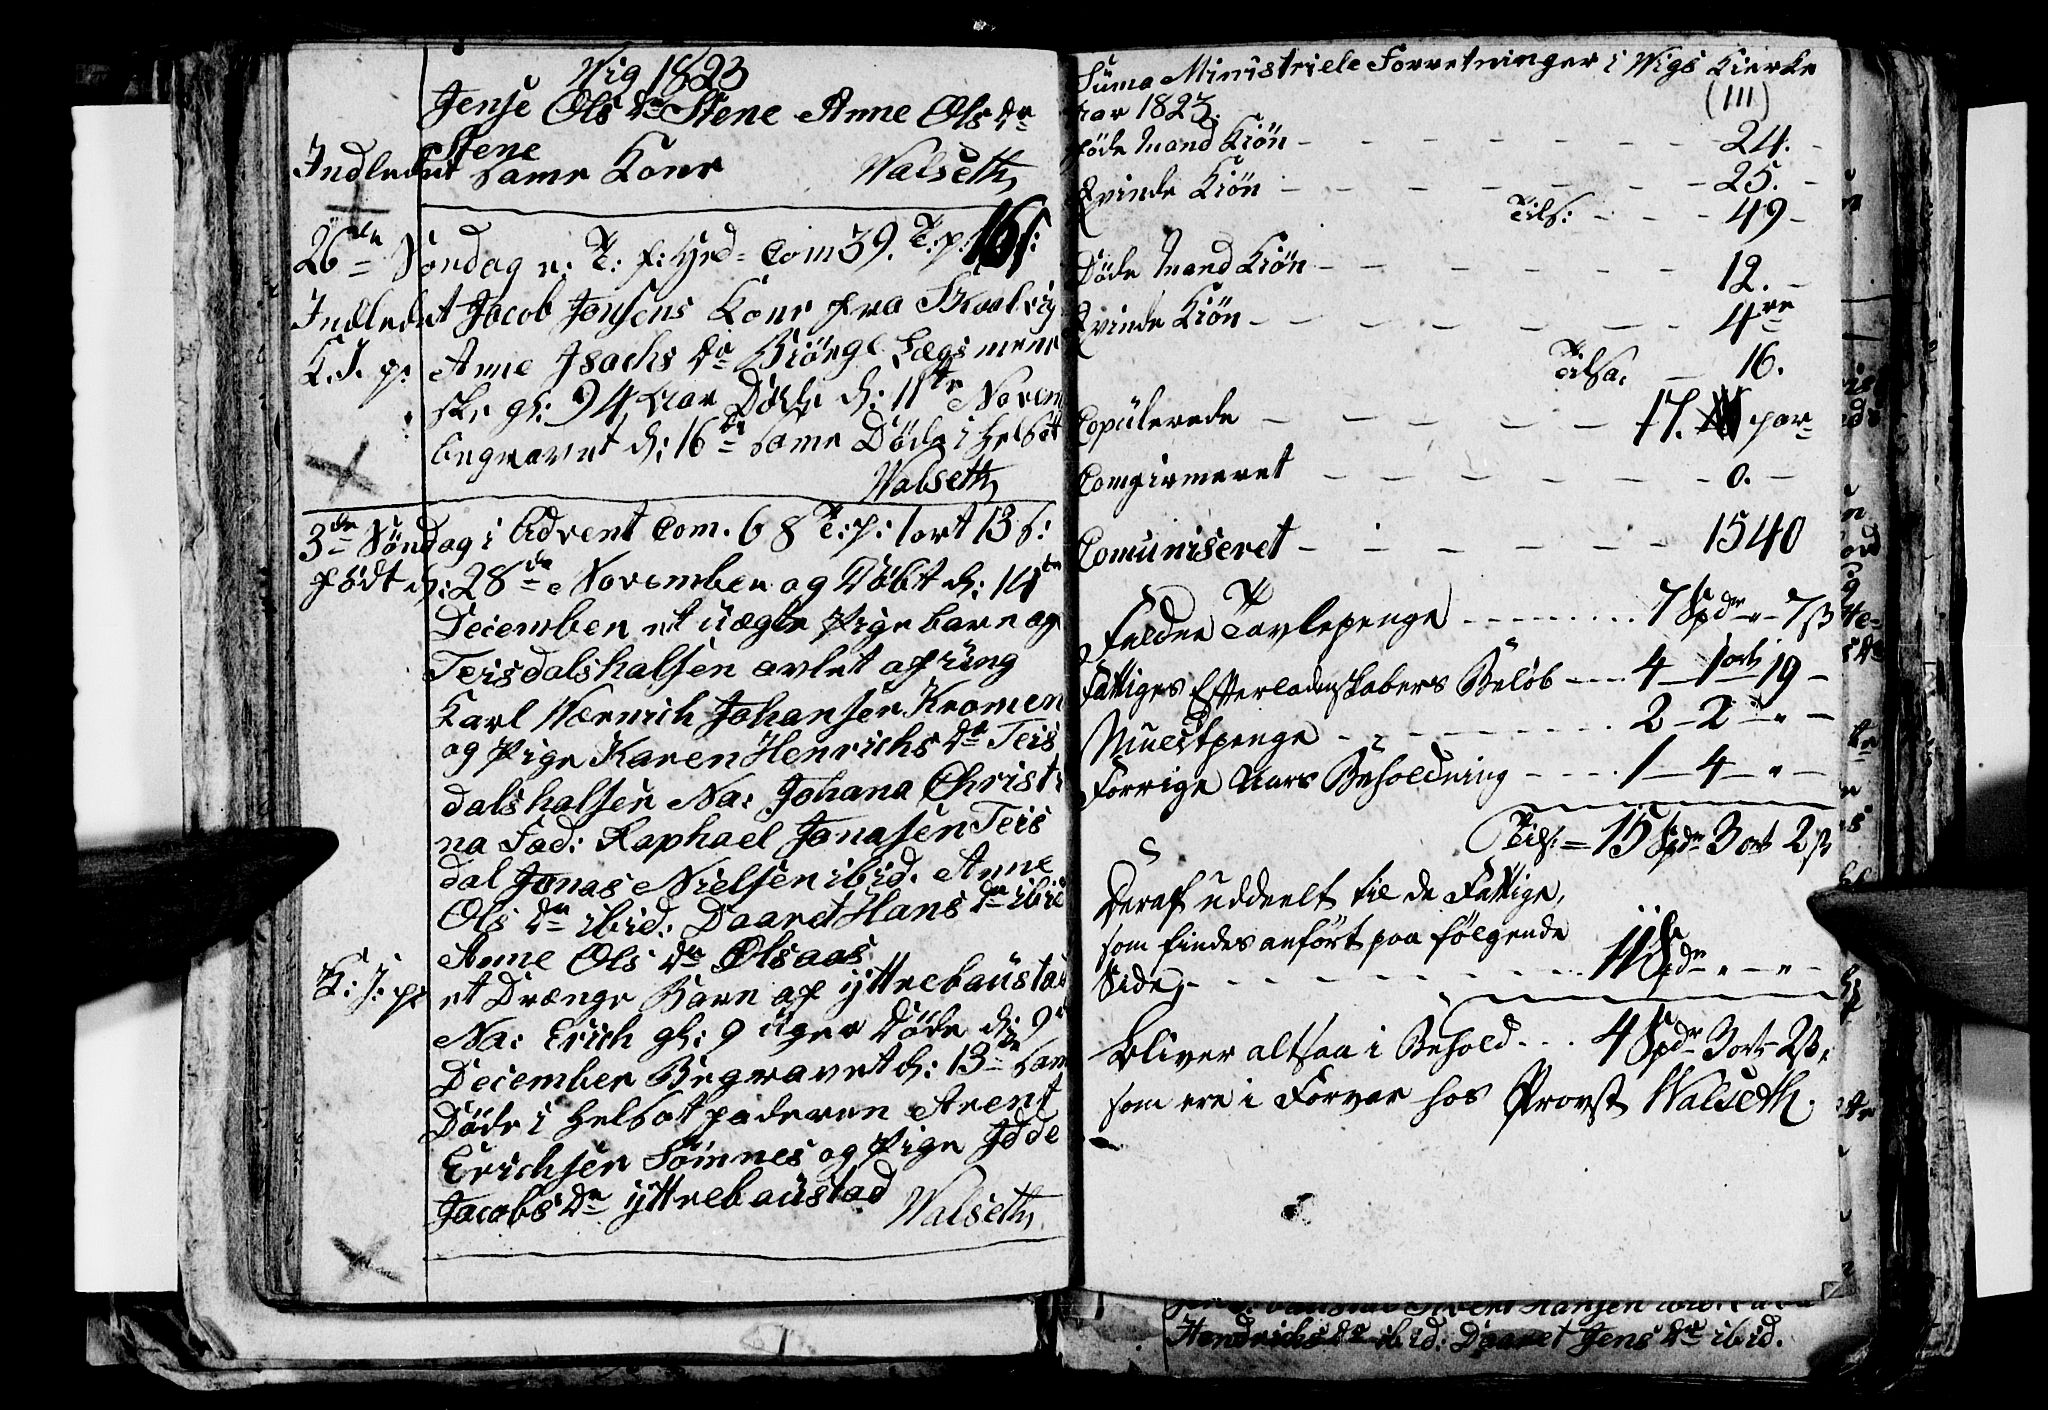 Vig 1823
Jense Ols Dr Stene Anne Ols Dr
Stene
Indledet Same Kone Walseth
26de Søndag n: T: f: Com 39. T:p: 16 s:
Indledet Jacob Jonsens Kone fra
K. J. p: Anne Isachs Dr Lægsmene
ske gl: 94 Aar Døde d: 11te Novem
begravet d: 16de Same Døde i Helsot
Walseth
3de Søndag i Advent Com. 68 T:p: 1 ort 13 s:
Født d: 28de November og Døbt d: 14de
December et uægte Pigebarn og
Teisdalshalsen avlet af ung
Karl Wærnich Johansen Kromen
og Pige Karen Henrichs Dr Teis
dalshalsen Na: Johana Christi
na Fad: Raphael Jonasen Teis
dal Jonas Nielsen ibid. Anne
Ols Dr ibid. Daaret Hans Dr ibid
Anne Ols Dr Olsaas
K: J: p: et Drænge Barn af yttrebaustad
Na: Erich gl: 9 Uger Døde d: 9
December Begravet d: 13de Sam
Døde i Helsot faderen Arent
Erichsen Sømnes og Pige Idde
Jacobs Dr yttrebaustad Walseth
Suma Ministriele Forretninger i Wigs Kierke
(111)
Aar 1823.
føde Mand Kiøn - - - 24. -
Qvinde Kiøn - - - 25. -
Tils: - - - 49 -
Døde Mand Kiøn - - - 12. -
Qvinde Kiøn - - - 4re
Tilsa. - 16.
Copulerede - - - 17. par
Comfirmeret - - - 0. -
Comuniseret - - - 1540
Falden Tavlepenge - - - 7 Spdr " 7 ß
Fattiges Efterladenskabers Beløb - - - 4 - 1 ort 19 -
- - - 2 - 2 - " -
Forrige Aars Beholdning - - - 1 - 4 - " -
Tils: = 15 Spdr 3 ort 2 ß
Deraf uddeelt til de Fattige,
som findes anført paa følgende
Side, - - - 11 Spdr " - " -
Bliver altsaa i Behold - - - 4 Spdr 3 ort 2 ß.
som ere i Forvar hos Provst Walseth.
Hansen
Hendrichs Dr ibid: Daaret Jens Dr ibid.